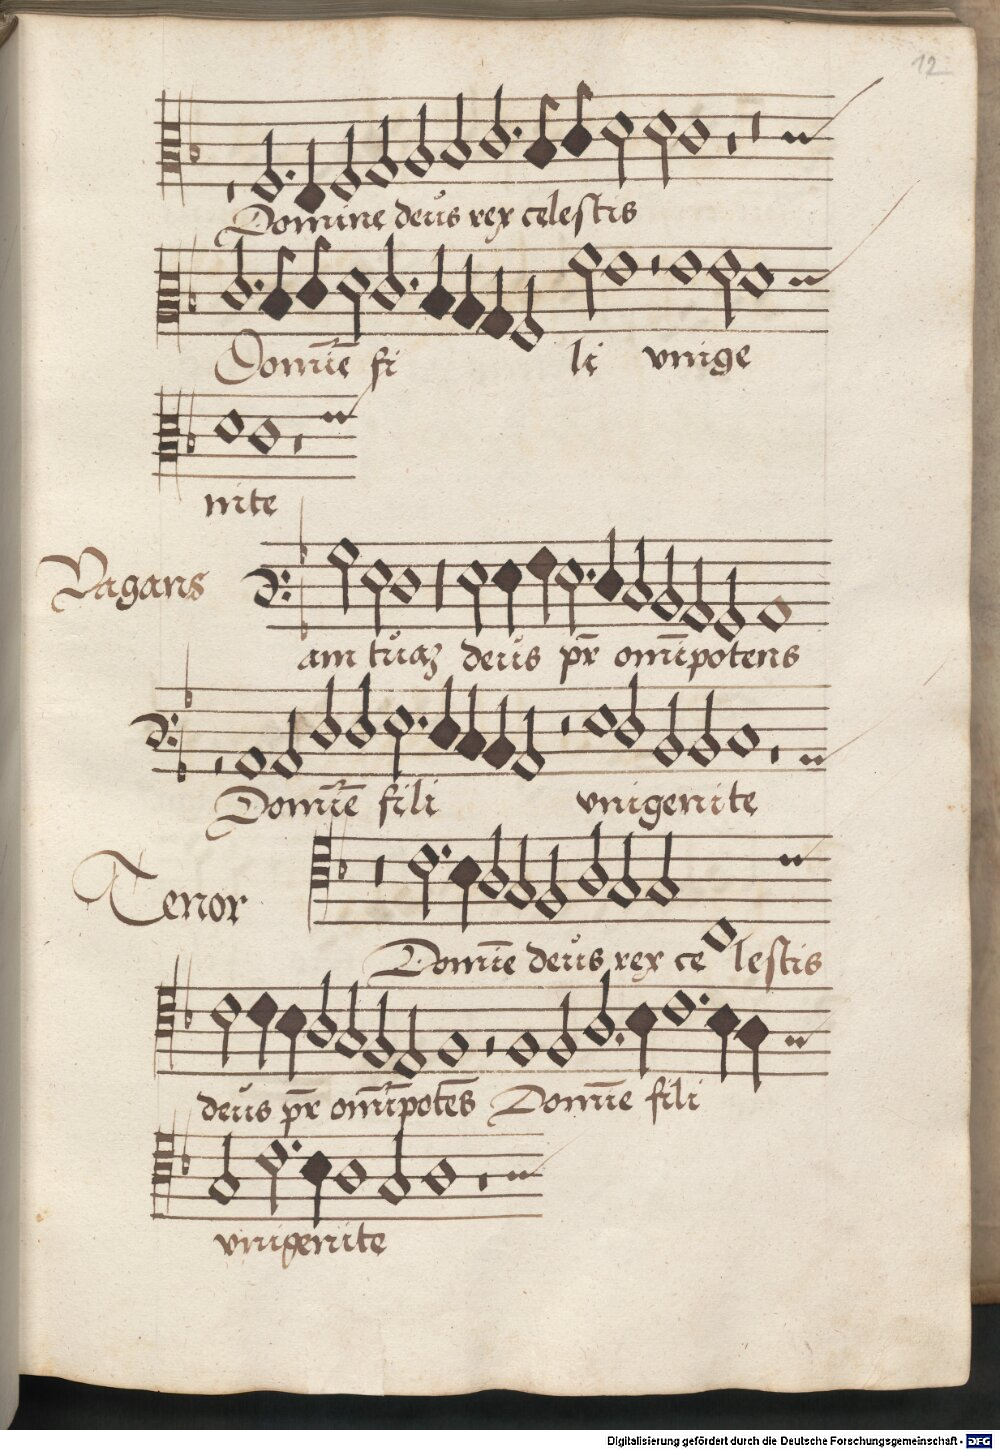 12
Domine deus rex celestis
Domīe fi li vnige
nite
Vagans
am tuaʒ deus pr̄ omīpotens
Domīe fili vnigenite
Tenor
Domīe deus rex ce lestis
deus pr̄ omīpotēs Domīe fili
vnigenite
Digitalisierung gefördert durch die Deutsche Forschungsgemeinschaft - DFG